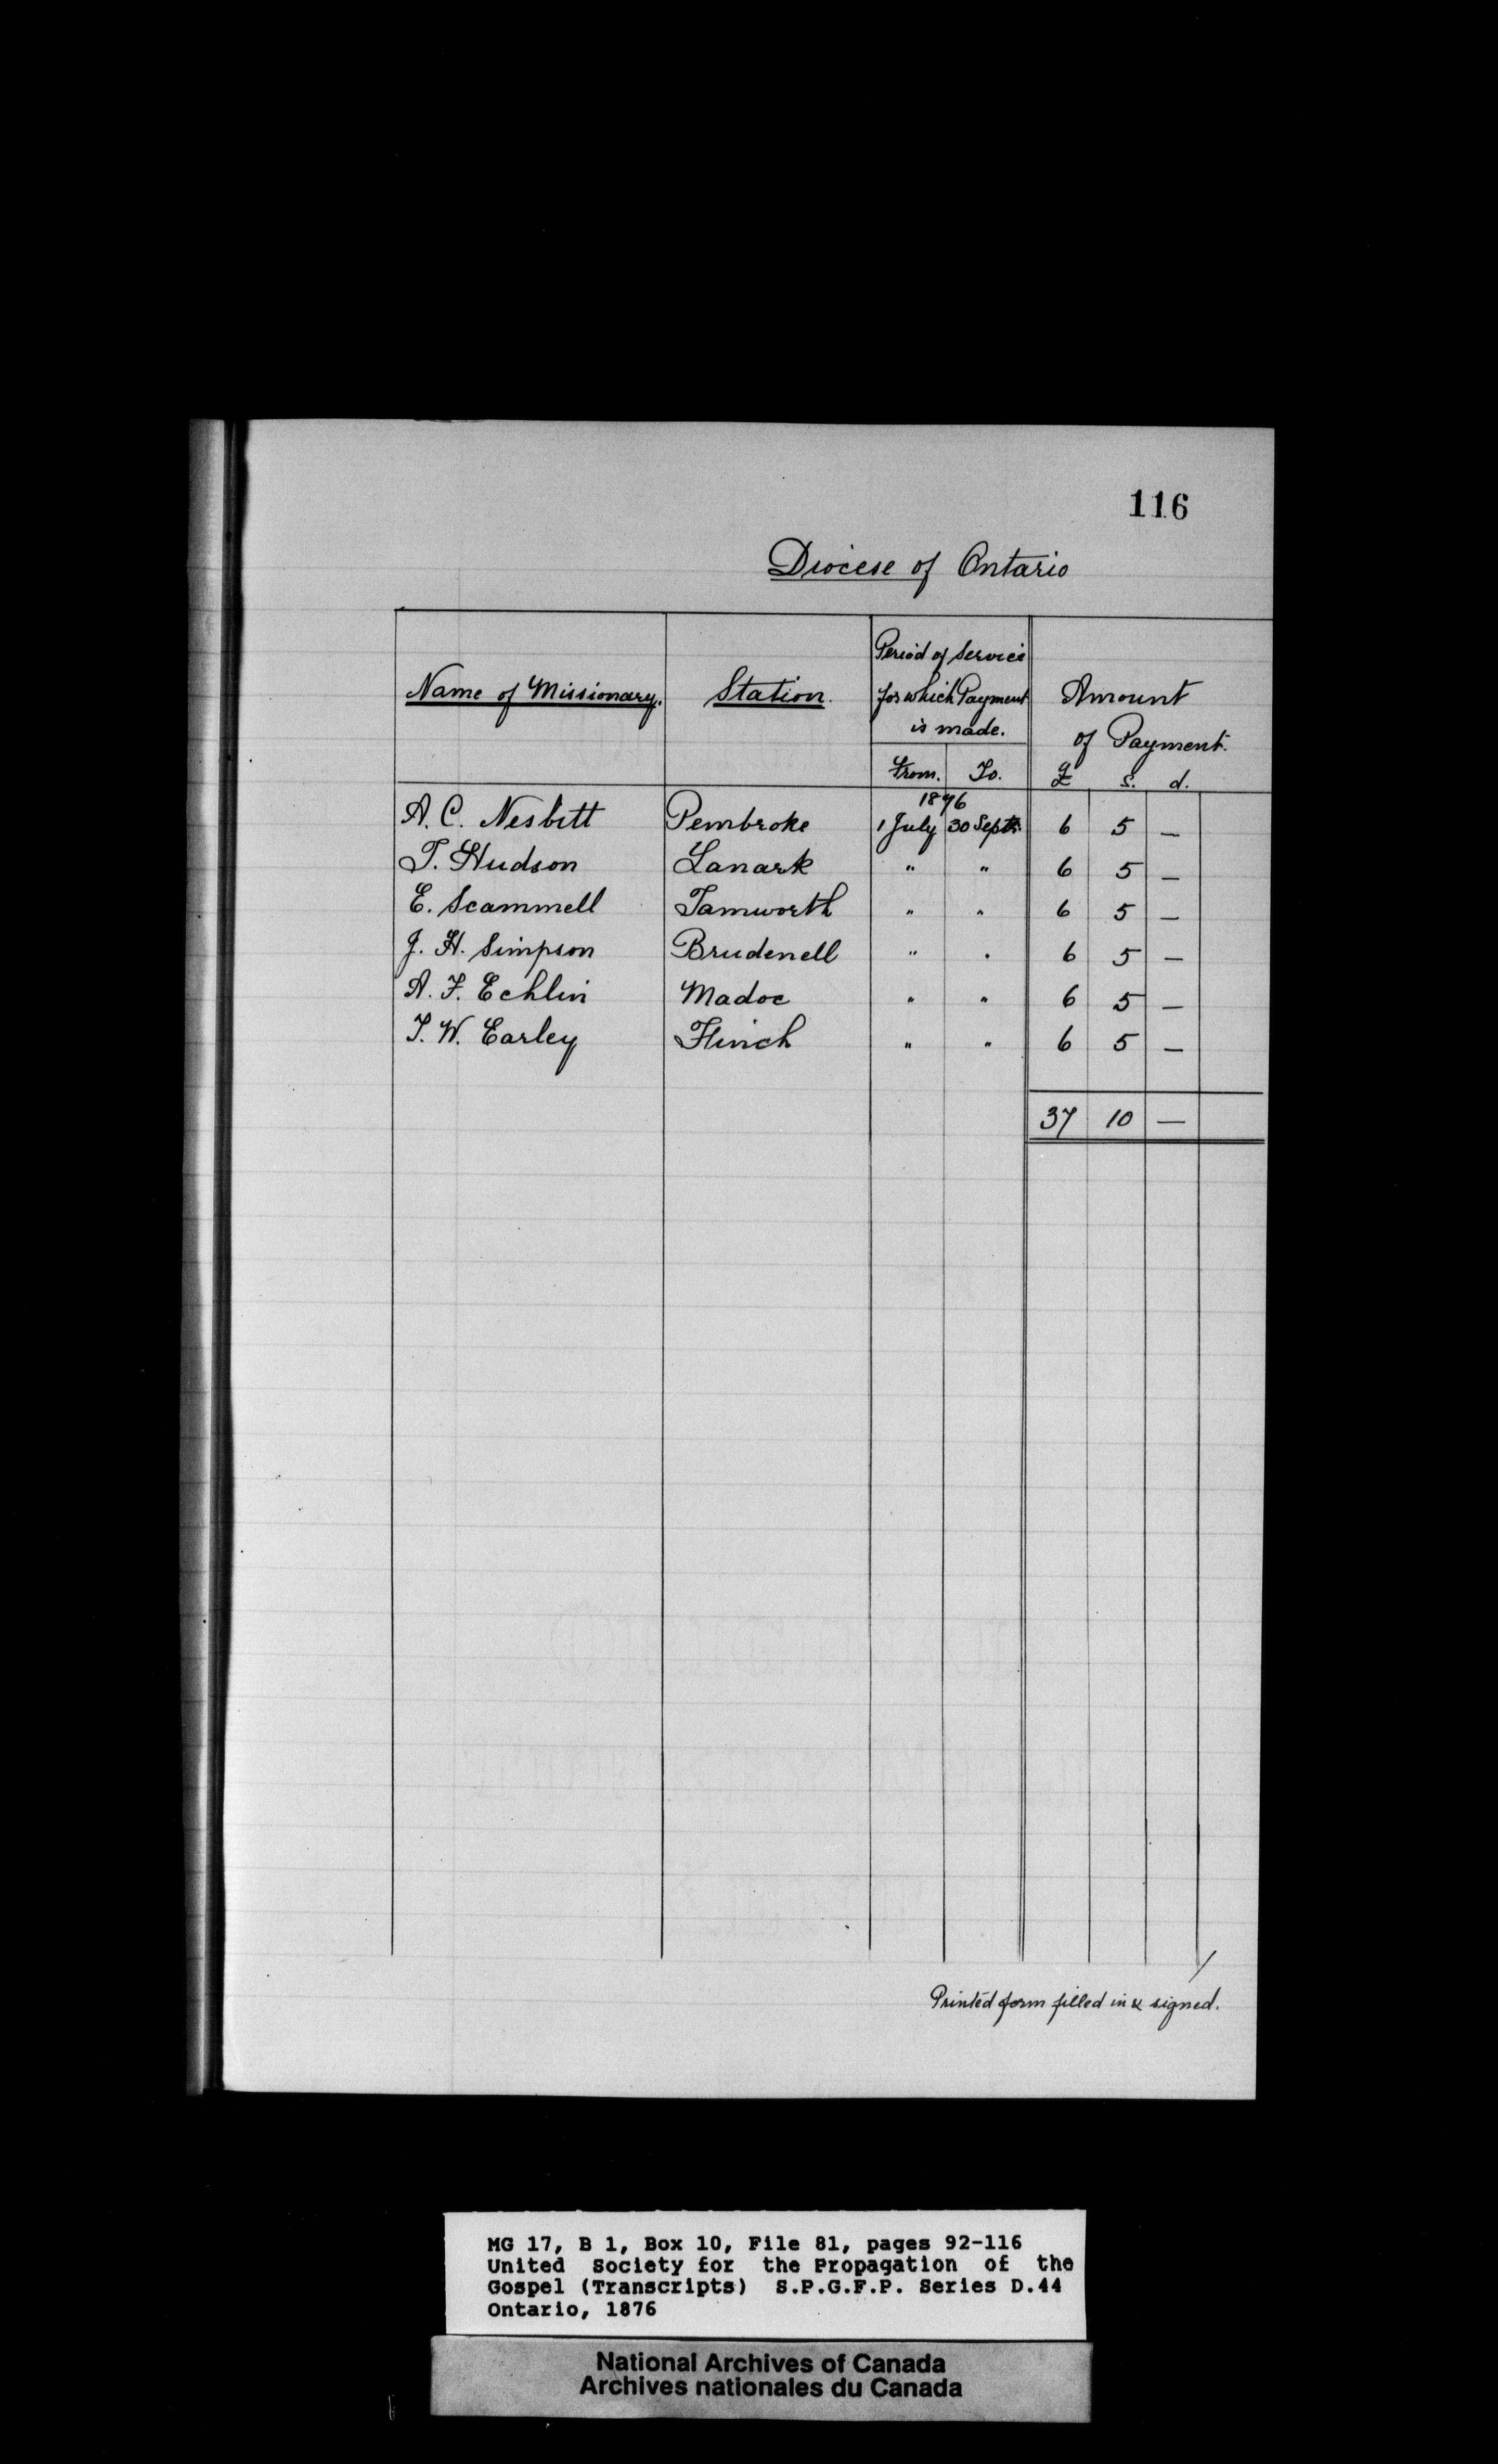 116
Diocese of Ontario
Name of Missionary. Station. Period of Service for which Payment is made. Amount of Payment.
From. To. £ s. d.
1876
A. C. Nesbitt Pembroke 1 July 30 Septr. 6 5 —
T. Hudson Lanark " " 6 5 —
E. Scammell Tamworth " " 6 5 —
J. H. Simpson Brudenell " " 6 5 —
A. F. Echlin Madoc " " 6 5 —
T. W. Earley Flinch " " 6 5 —
37 10 —
Printed form filled in & signed.
MG 17, B 1, Box 10, File 81, pages 92-116
United Society for the Propagation of the
Gospel (Transcripts) S.P.G.F.P. Series D.44
Ontario, 1876
National Archives of Canada
Archives nationales du Canada